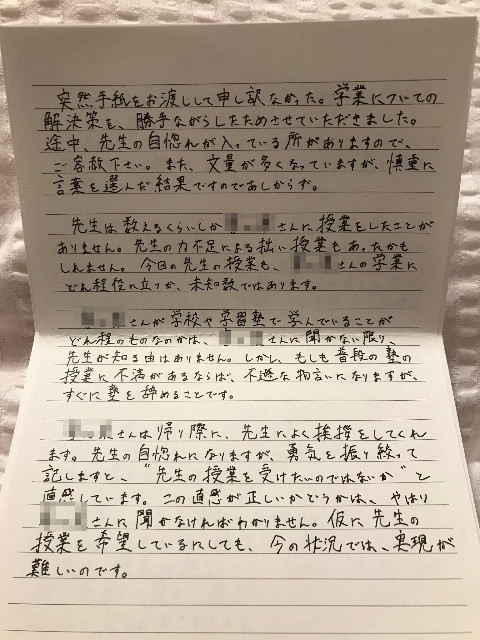 突然手紙をお渡しして申し訳なかった。学業についての
解決策を、勝手ながらしたためさせていただきました。
途中、先生の自惚れが入っている所がありますので、
ご容赦下さい。また、文量が多くなっていますが、慎重に
言葉を選んだ結果ですのであしからず。
先生は数えるくらいしか さんに授業をしたことが
ありません。先生の力不足による拙い授業もあったかも
しれません。今日の先生の授業も、 さんの学業に
どれ程役に立つか、未知数ではあります。
さんが学校や学習塾で学んでいることが
どれ程のものなのかは、 さんに聞かない限り、
先生が知る由はありません。しかし、もしも普段の塾の
授業に不満があるならば、不遜な物言いになりますが、
すぐに塾を辞めることです。
さんは帰り際に、先生によく挨拶をしてくれ
ます。先生の自惚れになりますが、勇気を振り絞って
記しますと、“先生の授業を受けたいのではないか”と
直感しています。この直感が正しいかどうかは、やはり
さんに聞かなければわかりません。仮に先生の
授業を希望しているにしても、今の状況では、実現が
難しいのです。